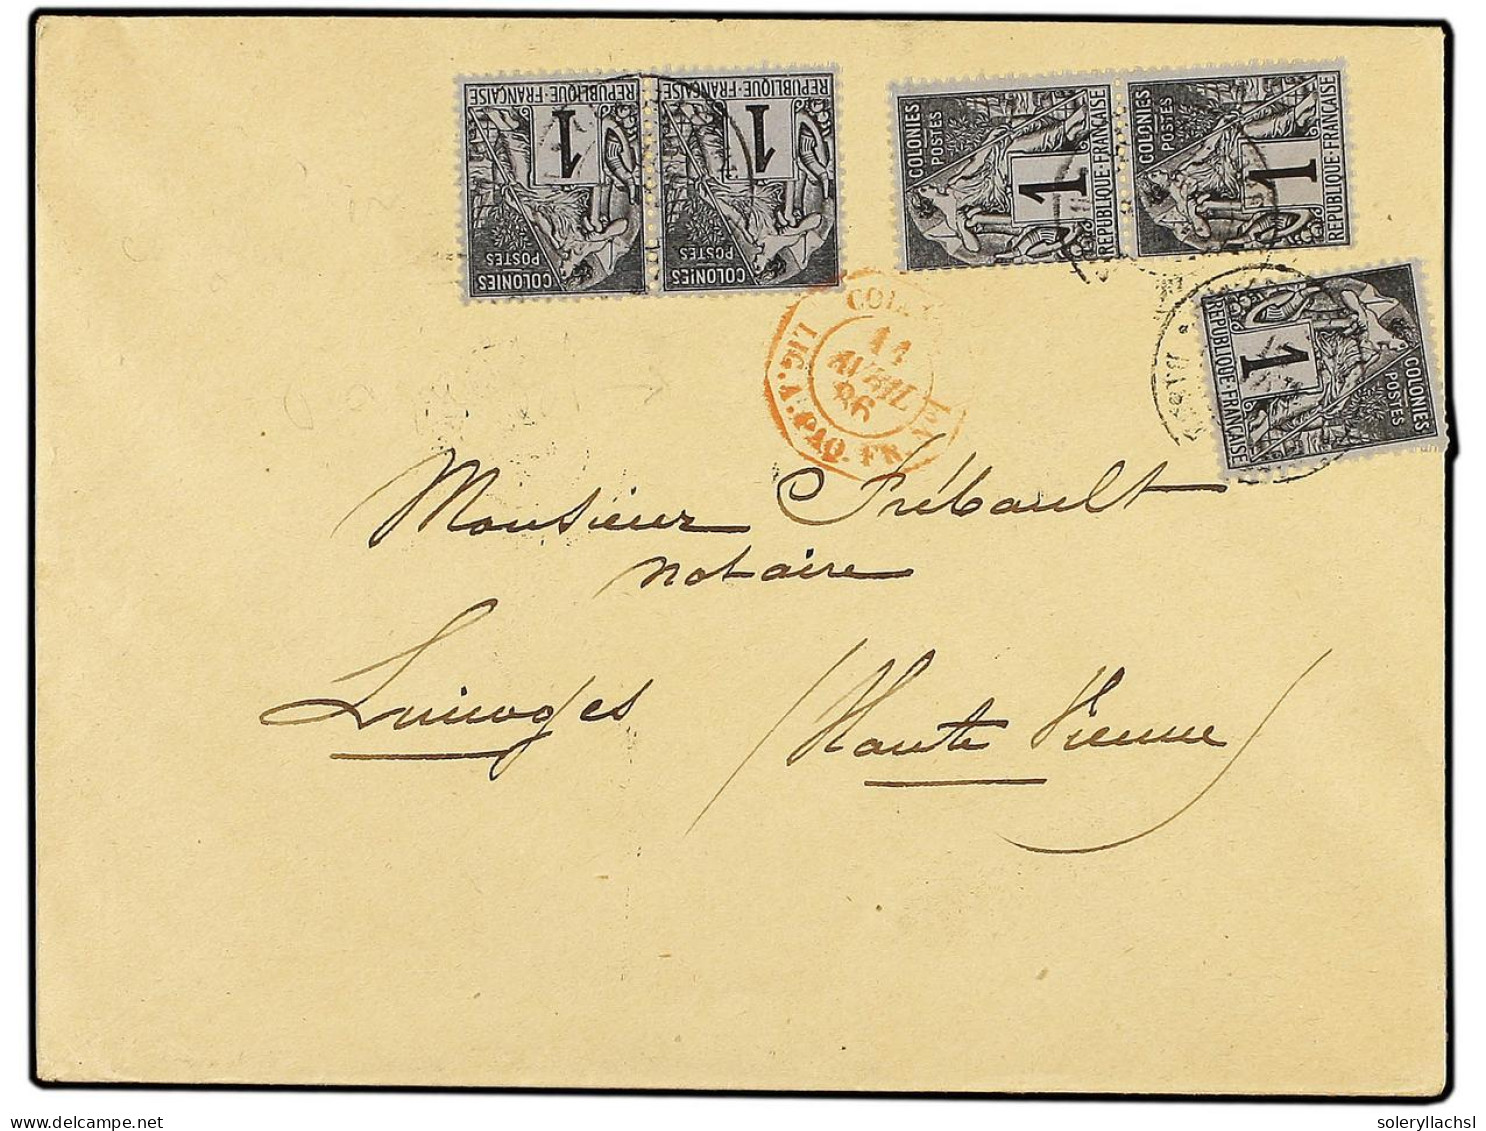 RÉPUBLIQUE-FRANÇAISE
1
COLONIES
POSTES
RÉPUBLIQUE-FRANÇAISE
1
COLONIES
POSTES
COLONIES
POSTES
1
REPUBLIQUE-FRANÇAISE
COLONIES
POSTES
1
REPUBLIQUE-FRANÇAISE
COLONIES
POSTES
1
REPUBLIQUE FRANÇAISE
COL.
11
AVRIL
86
LIG. A. PAQ. FR. Nº1
Monsieur Frébault
notaire
Limoges (Haute Vienne)
www.delcampe.net
soleryllachsl